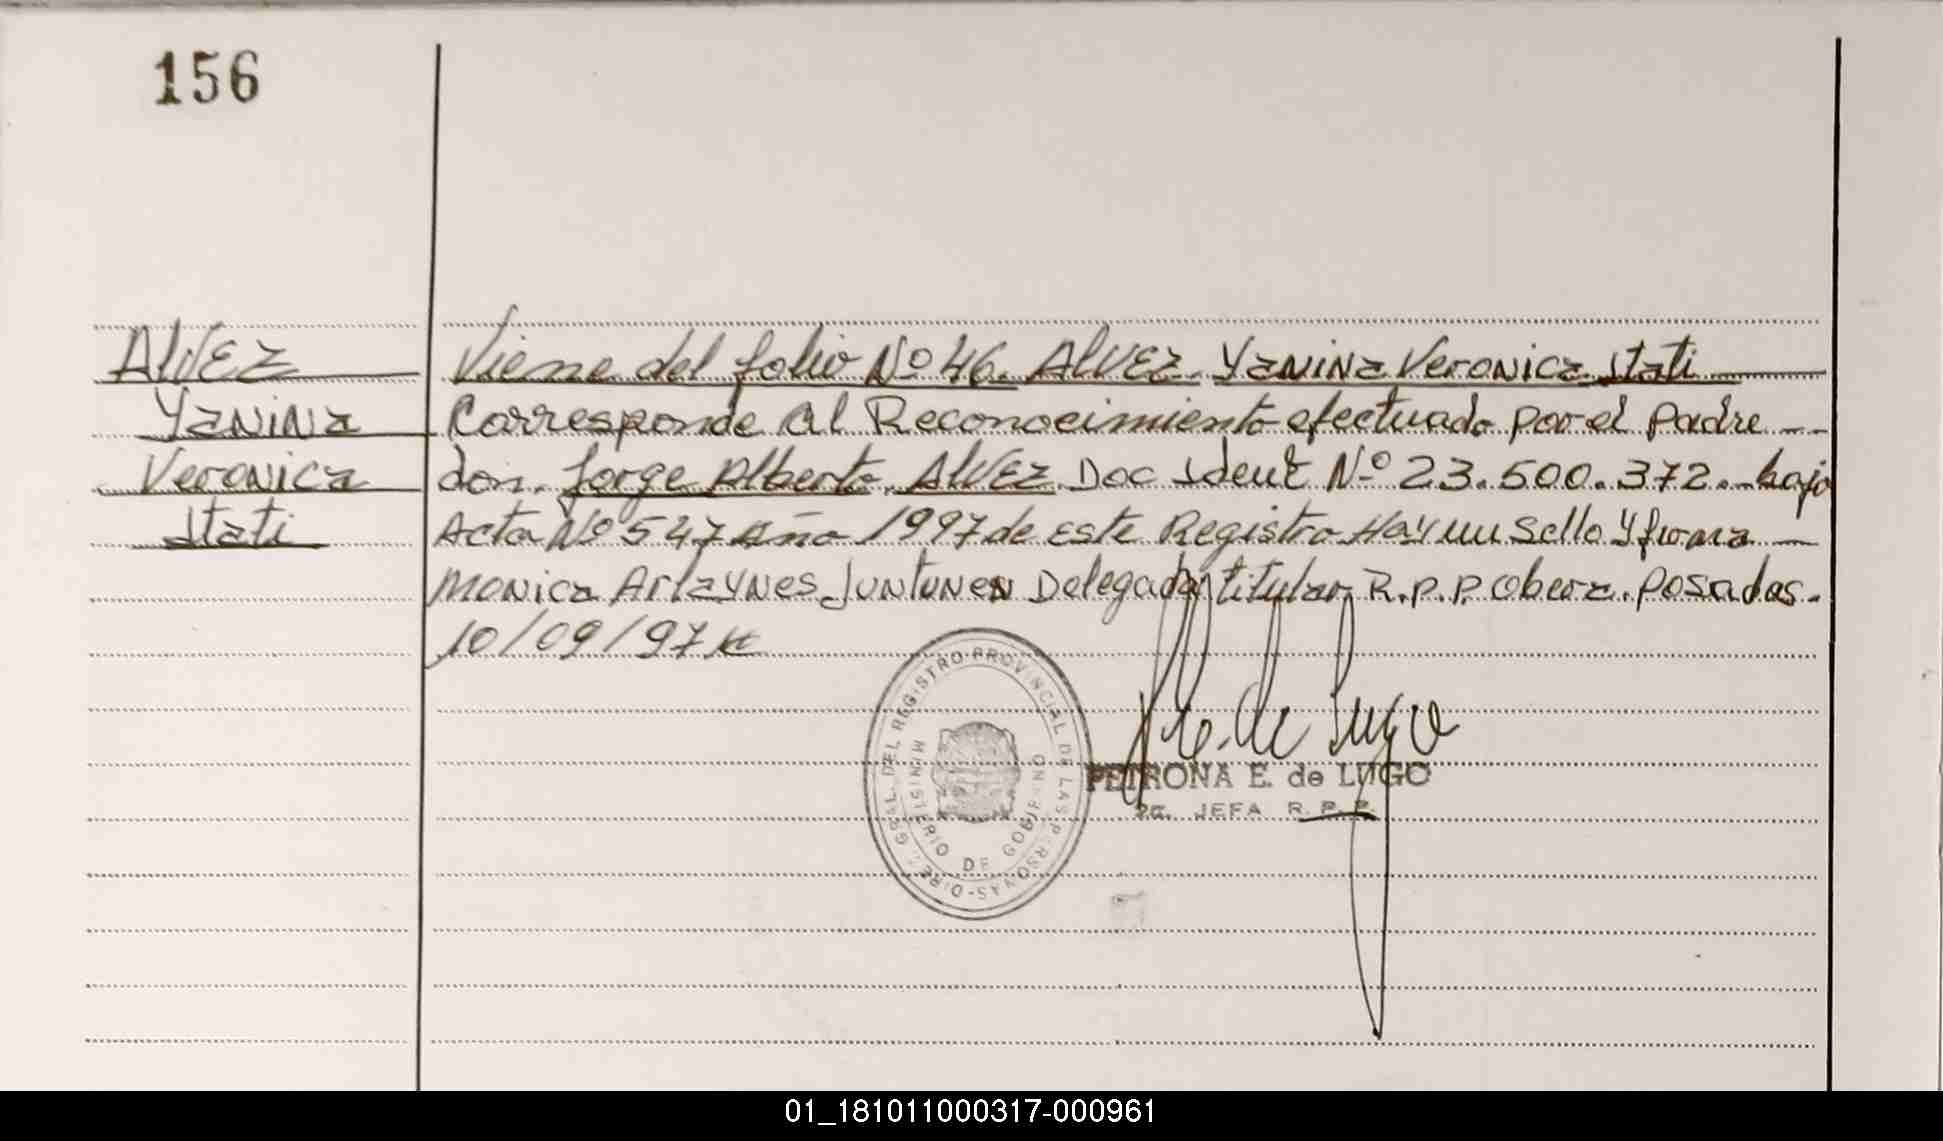 156
ALVEZ
Yanina
Veronica
Itati
Viene del folio Nº 46. ALVEZ. Yanina Veronica Itati
Corresponde al Reconocimiento efectuado por el padre --
don. Jorge Alberto. ALVEZ Doc Ident Nº 23.500.372.- bajo
Acta Nº 547 Año 1997 de Este Registro Hay un Sello Y firma —
Monica Arlaynes Juntunen Delegada titular R.P.P. Obera. Posadas.
10/09/97
DIREC. GRAL. DEL REGISTRO PROVINCIAL DE LAS PERSONAS
MINISTERIO DE GOBIERNO
PETRONA E. de LUGO
JEFA R.P.P.
01_181011000317-000961